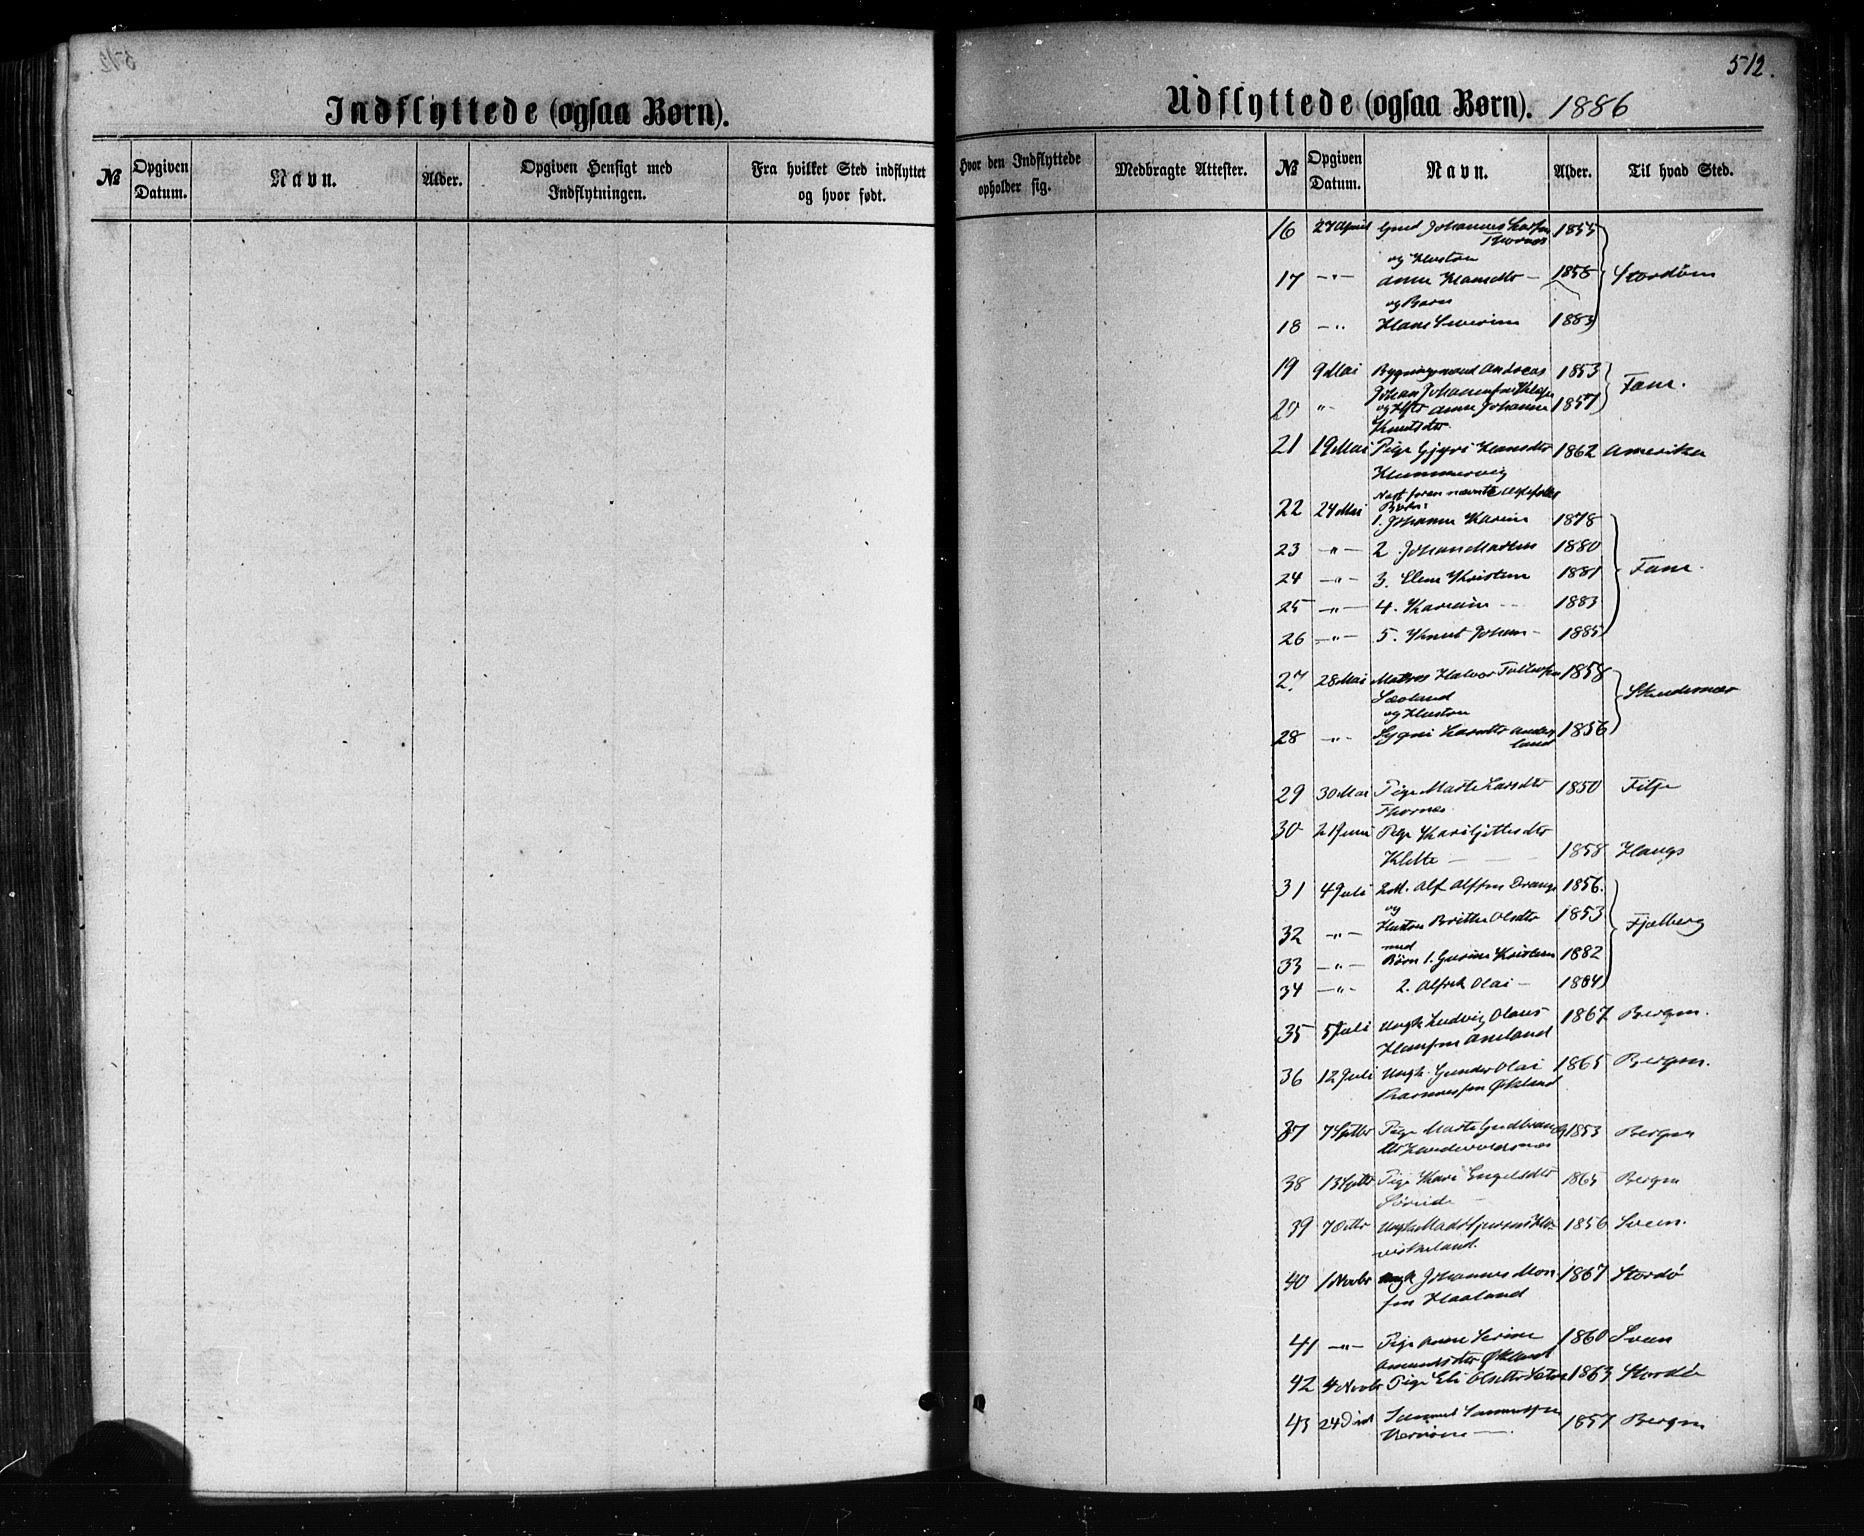 512.
Indflyttede (ogsaa Børn).
Udflyttede (ogsaa Børn). 1886
№ Opgiven Datum. Navn. Alder. Opgiven Hensigt med Indflytningen. Fra hvilket Sted indflyttet og hvor født.
Hvor den Indflyttede opholder sig. Medbragte Attester. № Opgiven Datum. Navn. Alder. Til hvad Sted.
16 27 April Johannes 1855
Thornes
og Hustru
17 -"- Anne Hansdtr 1856 Stordøen
og Barn
18 -"- Hans Severin 1883
19 9 Mai Andreas 1853
Johan Fane.
20 "- og Anne Johanne 1857
Knutsdtr
21 19 Mai Pige Hansdtr 1862 Amerika
Hummervig
nævnte
22 24 Mai Børn:
1. Johanne Karine 1878
23 -"- 2 Johan Martin 1880
24 -"- 3. Elene Kristine 1881 Fane.
25 -"- 4. 1883
26 -"- 5. Knut Johan 1885
27 28 Mai Halvor 1858
Sæland Skudesnæs
og Hustru
28 -"- 1856
29 30 Mai Pige Marte Larsdtr 1850 Fitje
Thornes
30 21 Juni Pige Kari
1858 Haugs
31 4 Juli Alf Alfsen Drange 1856.
og
32 -"- Hustru Brithe Olsdtr 1853 Fjelberg
med
33 -"- Børn 1. Kristine 1882
34 -"- 2. Alfred Olai 1884
35 5 Juli Ungk. Ludvig Olaus 1867 Bergen.
Hansen
36 12 Juli Ungk. Gunder Olai 1865 Bergen.
Økland
37 7 Septbr Pige Marte 1853 Bergen
38 13 Septbr Pige Kari Engelsdtr 1865 Bergen
39 7 Octbr 1856 Sveen.
40 1 Novbr Ungk Johannes Mon- 1867 Stordø
sen Haaland
41 -"- Pige Anne Serine 1860 Sveen
Amundsdtr Økland
42 4 Novbr Pige Eli Olsdtr 1863 Stordø
43 24 Samuel 1857 Bergen